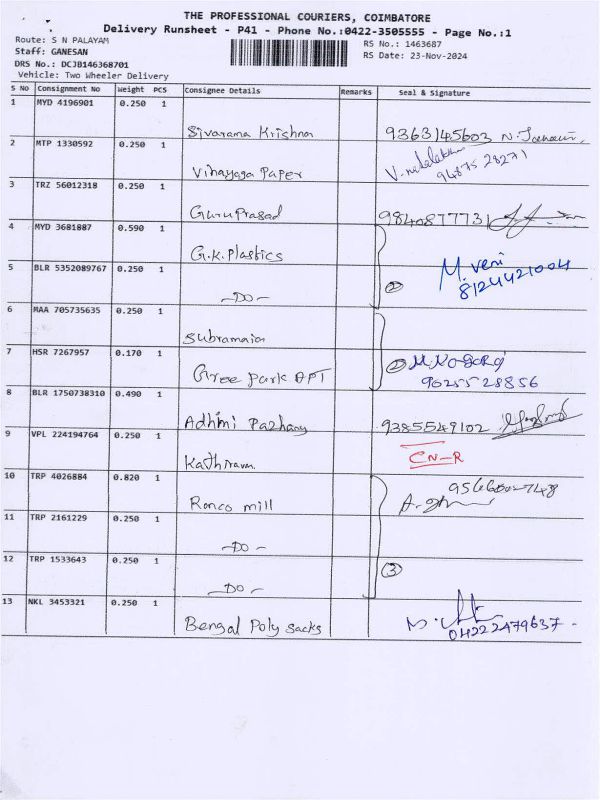 THE PROFESSIONAL COURIERS, COIMBATORE
Delivery Runsheet - P41 - Phone No.:0422-3505555 - Page No.:1
Route: S N PALAYAM
RS No.: 1463687
Staff: GANESAN
RS Date: 23-Nov-2024
DRS No.: DCJB146368701
Vehicle: Two Wheeler Delivery
S No Consignment No Weight PCS Consignee Details Remarks Seal & Signature
1 MYD 4196901 0.250 1
Sivarama Krishna 9363145603
2 MTP 1330592 0.250 1
Vinayaga Paper 94875 28271
3 TRZ 56012318 0.250 1
Guru Prasad 9840877731
4 MYD 3681887 0.590 1
G.K. Plastics
M. Veni
5 BLR 5352089767 0.250 1
8124421004
-DO- 2
6 MAA 705735635 0.250 1
Subramaian
7 HSR 7267957 0.170 1
Gree Park APT 2
9025528856
8 BLR 1750738310 0.490 1
Adhini Pazhany 9385549102
9 VPL 224194764 0.250 1
Kathiravan CN-R
10 TRP 4026884 0.820 1
Ronco mill
11 TRP 2161229 0.250 1
-DO-
12 TRP 1533643 0.250 1
3
-DO-
13 NKL 3453321 0.250 1
Bengal Poly sacks 04222479637